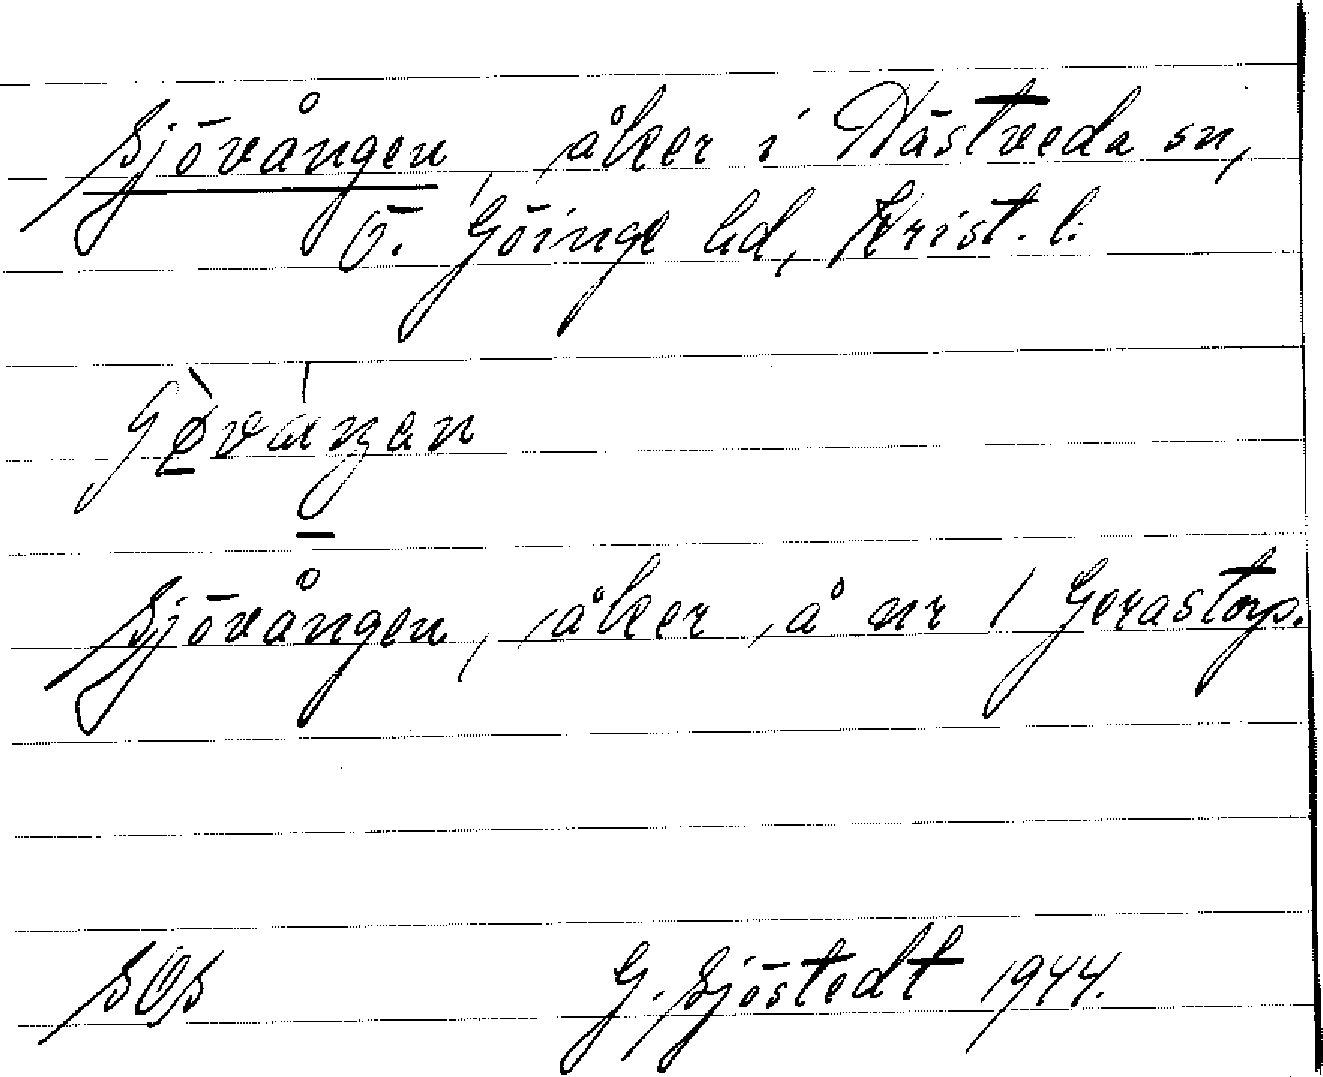 Sjövången, åker i Nästveda sn,
Ö. Göinge hd, Krist. l.
Sjövången, åker å nr 1 Gorastorp.
SOS G. Sjöstedt 1944.